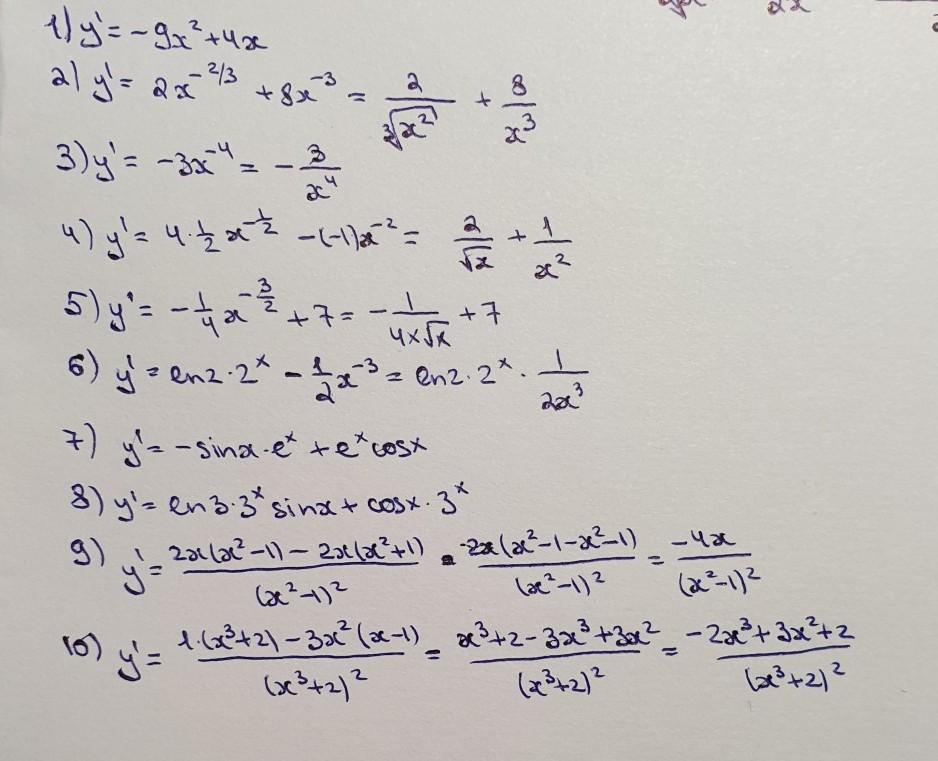 1) y' = -9x² + 4x
2) y' = 2x^{-2/3} + 8x^{-3} = 2/∛(x²) + 8/x³
3) y' = -3x^{-4} = -3/x⁴
4) y' = 4·1/2 x^{-1/2} - (-1)x^{-2} = 2/√x + 1/x²
5) y' = -1/4 x^{-3/2} + 7 = -1/(4x√x) + 7
6) y' = ln2·2^x - 1/2 x^{-3} = ln2·2^x · 1/(2x³)
7) y' = -sinx·e^x + e^x cosx
8) y' = ln3·3^x sinx + cosx·3^x
9) y' = (2x(x²-1) - 2x(x²+1))/(x²-1)² = 2x(x²-1-x²-1)/(x²-1)² = -4x/(x²-1)²
10) y' = (1·(x³+2) - 3x²(x-1))/(x³+2)² = (x³+2-3x³+3x²)/(x³+2)² = (-2x³+3x²+2)/(x³+2)²